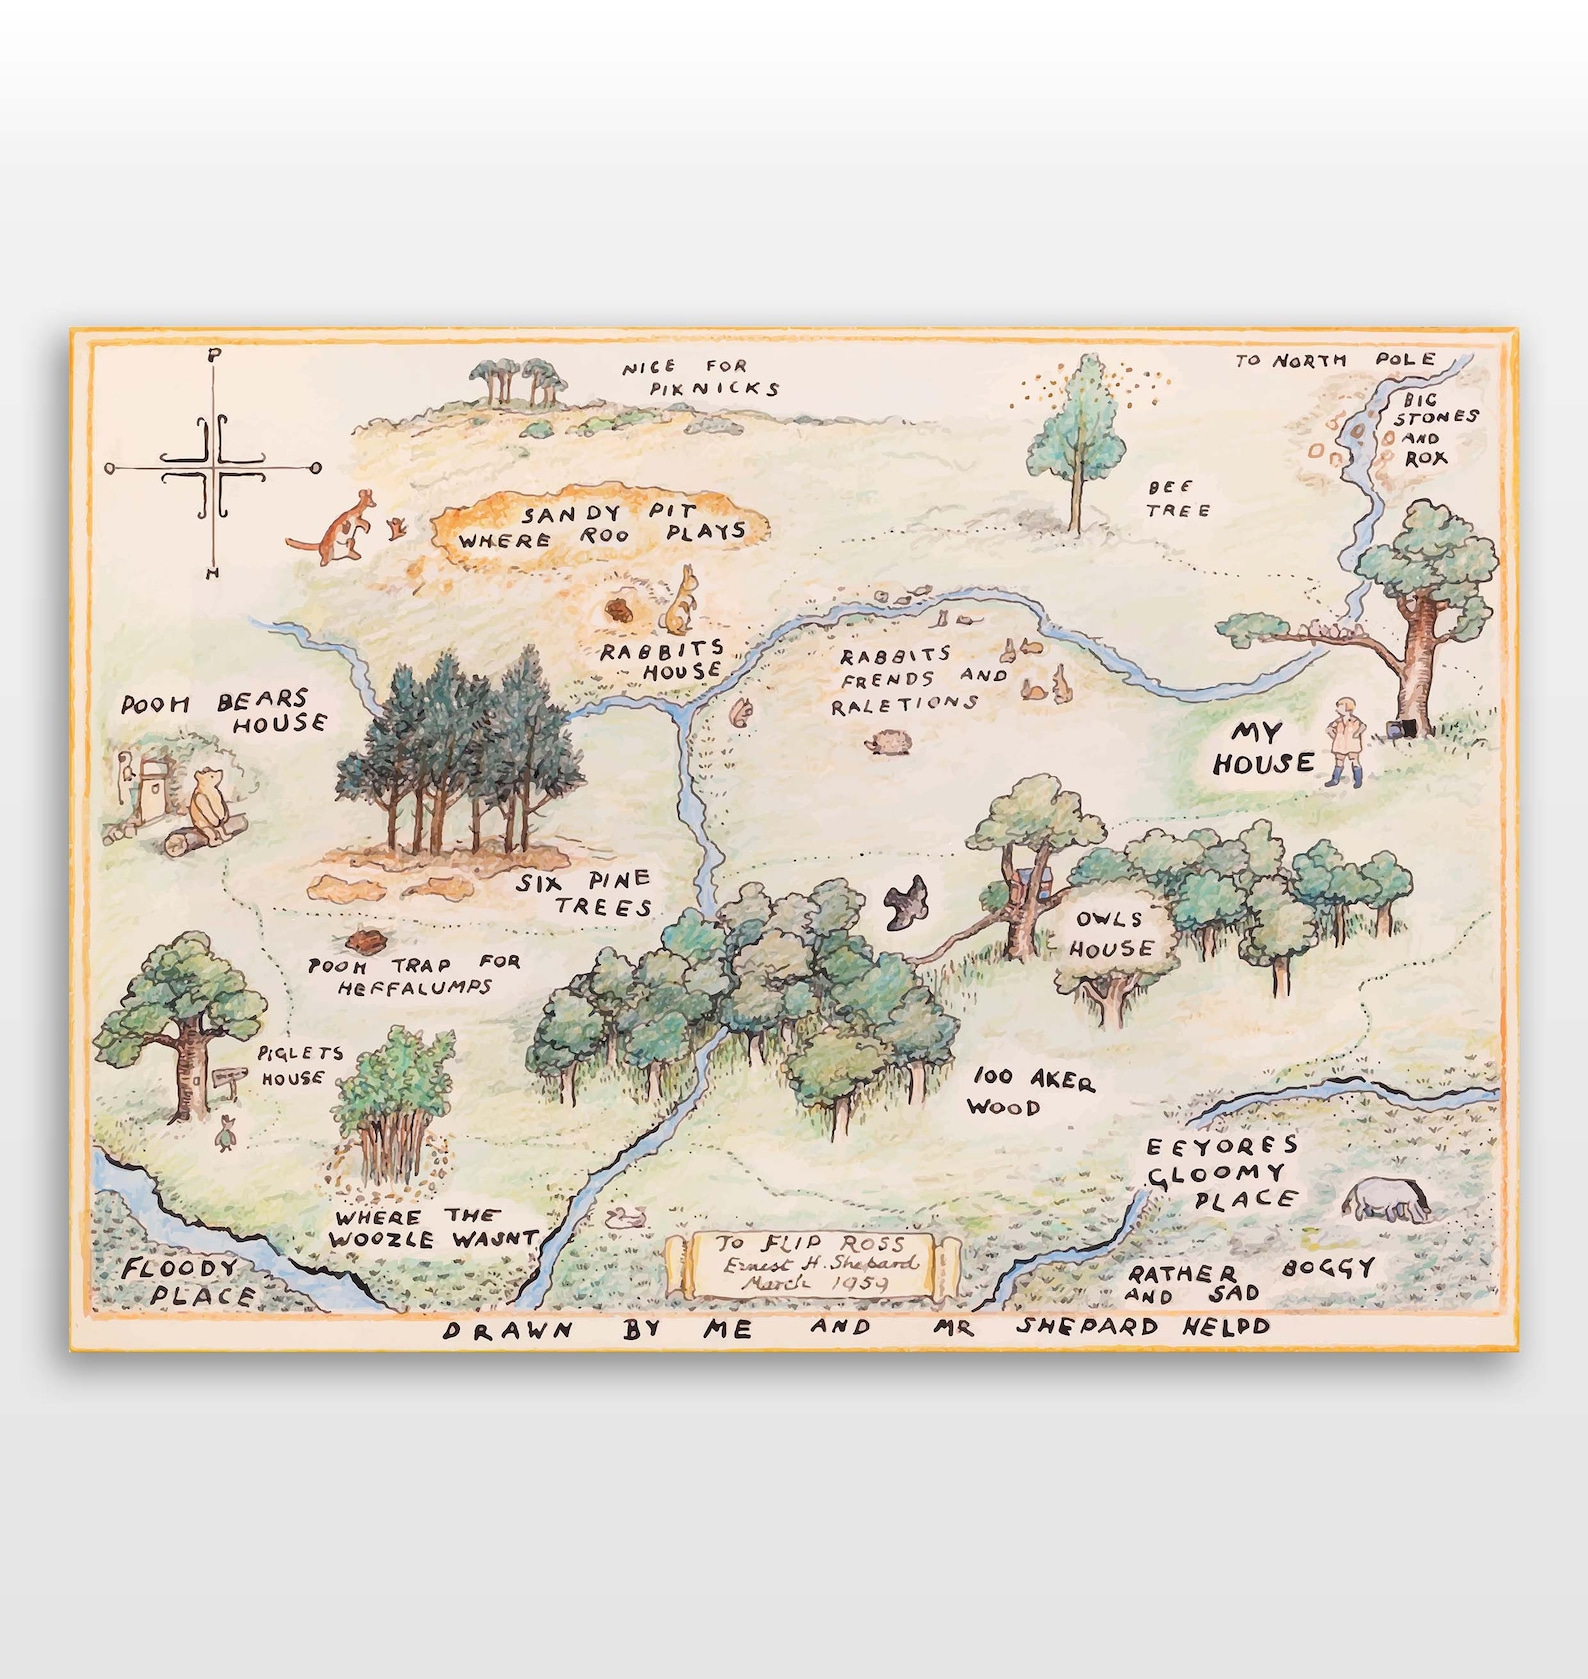 P
O
O
H
NICE FOR
PIKNICKS
TO NORTH POLE
BIG
STONES
AND
ROX
BEE
TREE
SANDY PIT
WHERE ROO PLAYS
RABBITS
HOUSE
RABBITS
FRENDS AND
RALETIONS
POOH BEARS
HOUSE
MY
HOUSE
SIX PINE
TREES
POOH TRAP FOR
HEFFALUMPS
OWLS
HOUSE
PIGLETS
HOUSE
100 AKER
WOOD
WHERE THE
WOOZLE WASNT
EEYORES
GLOOMY
PLACE
FLOODY
PLACE
TO FLIP ROSS
Ernest H. Shepard
March 1959
RATHER BOGGY
AND SAD
DRAWN BY ME AND MR SHEPARD HELPD